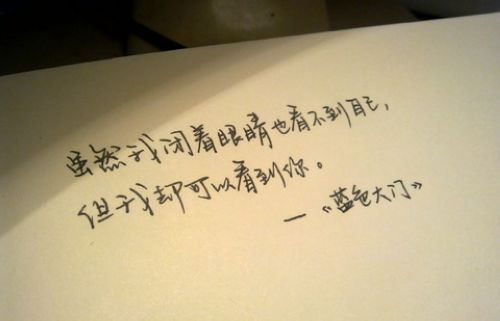 虽然我闭着眼睛也看不到自己，
但我却可以看到你。
—《蓝色大门》